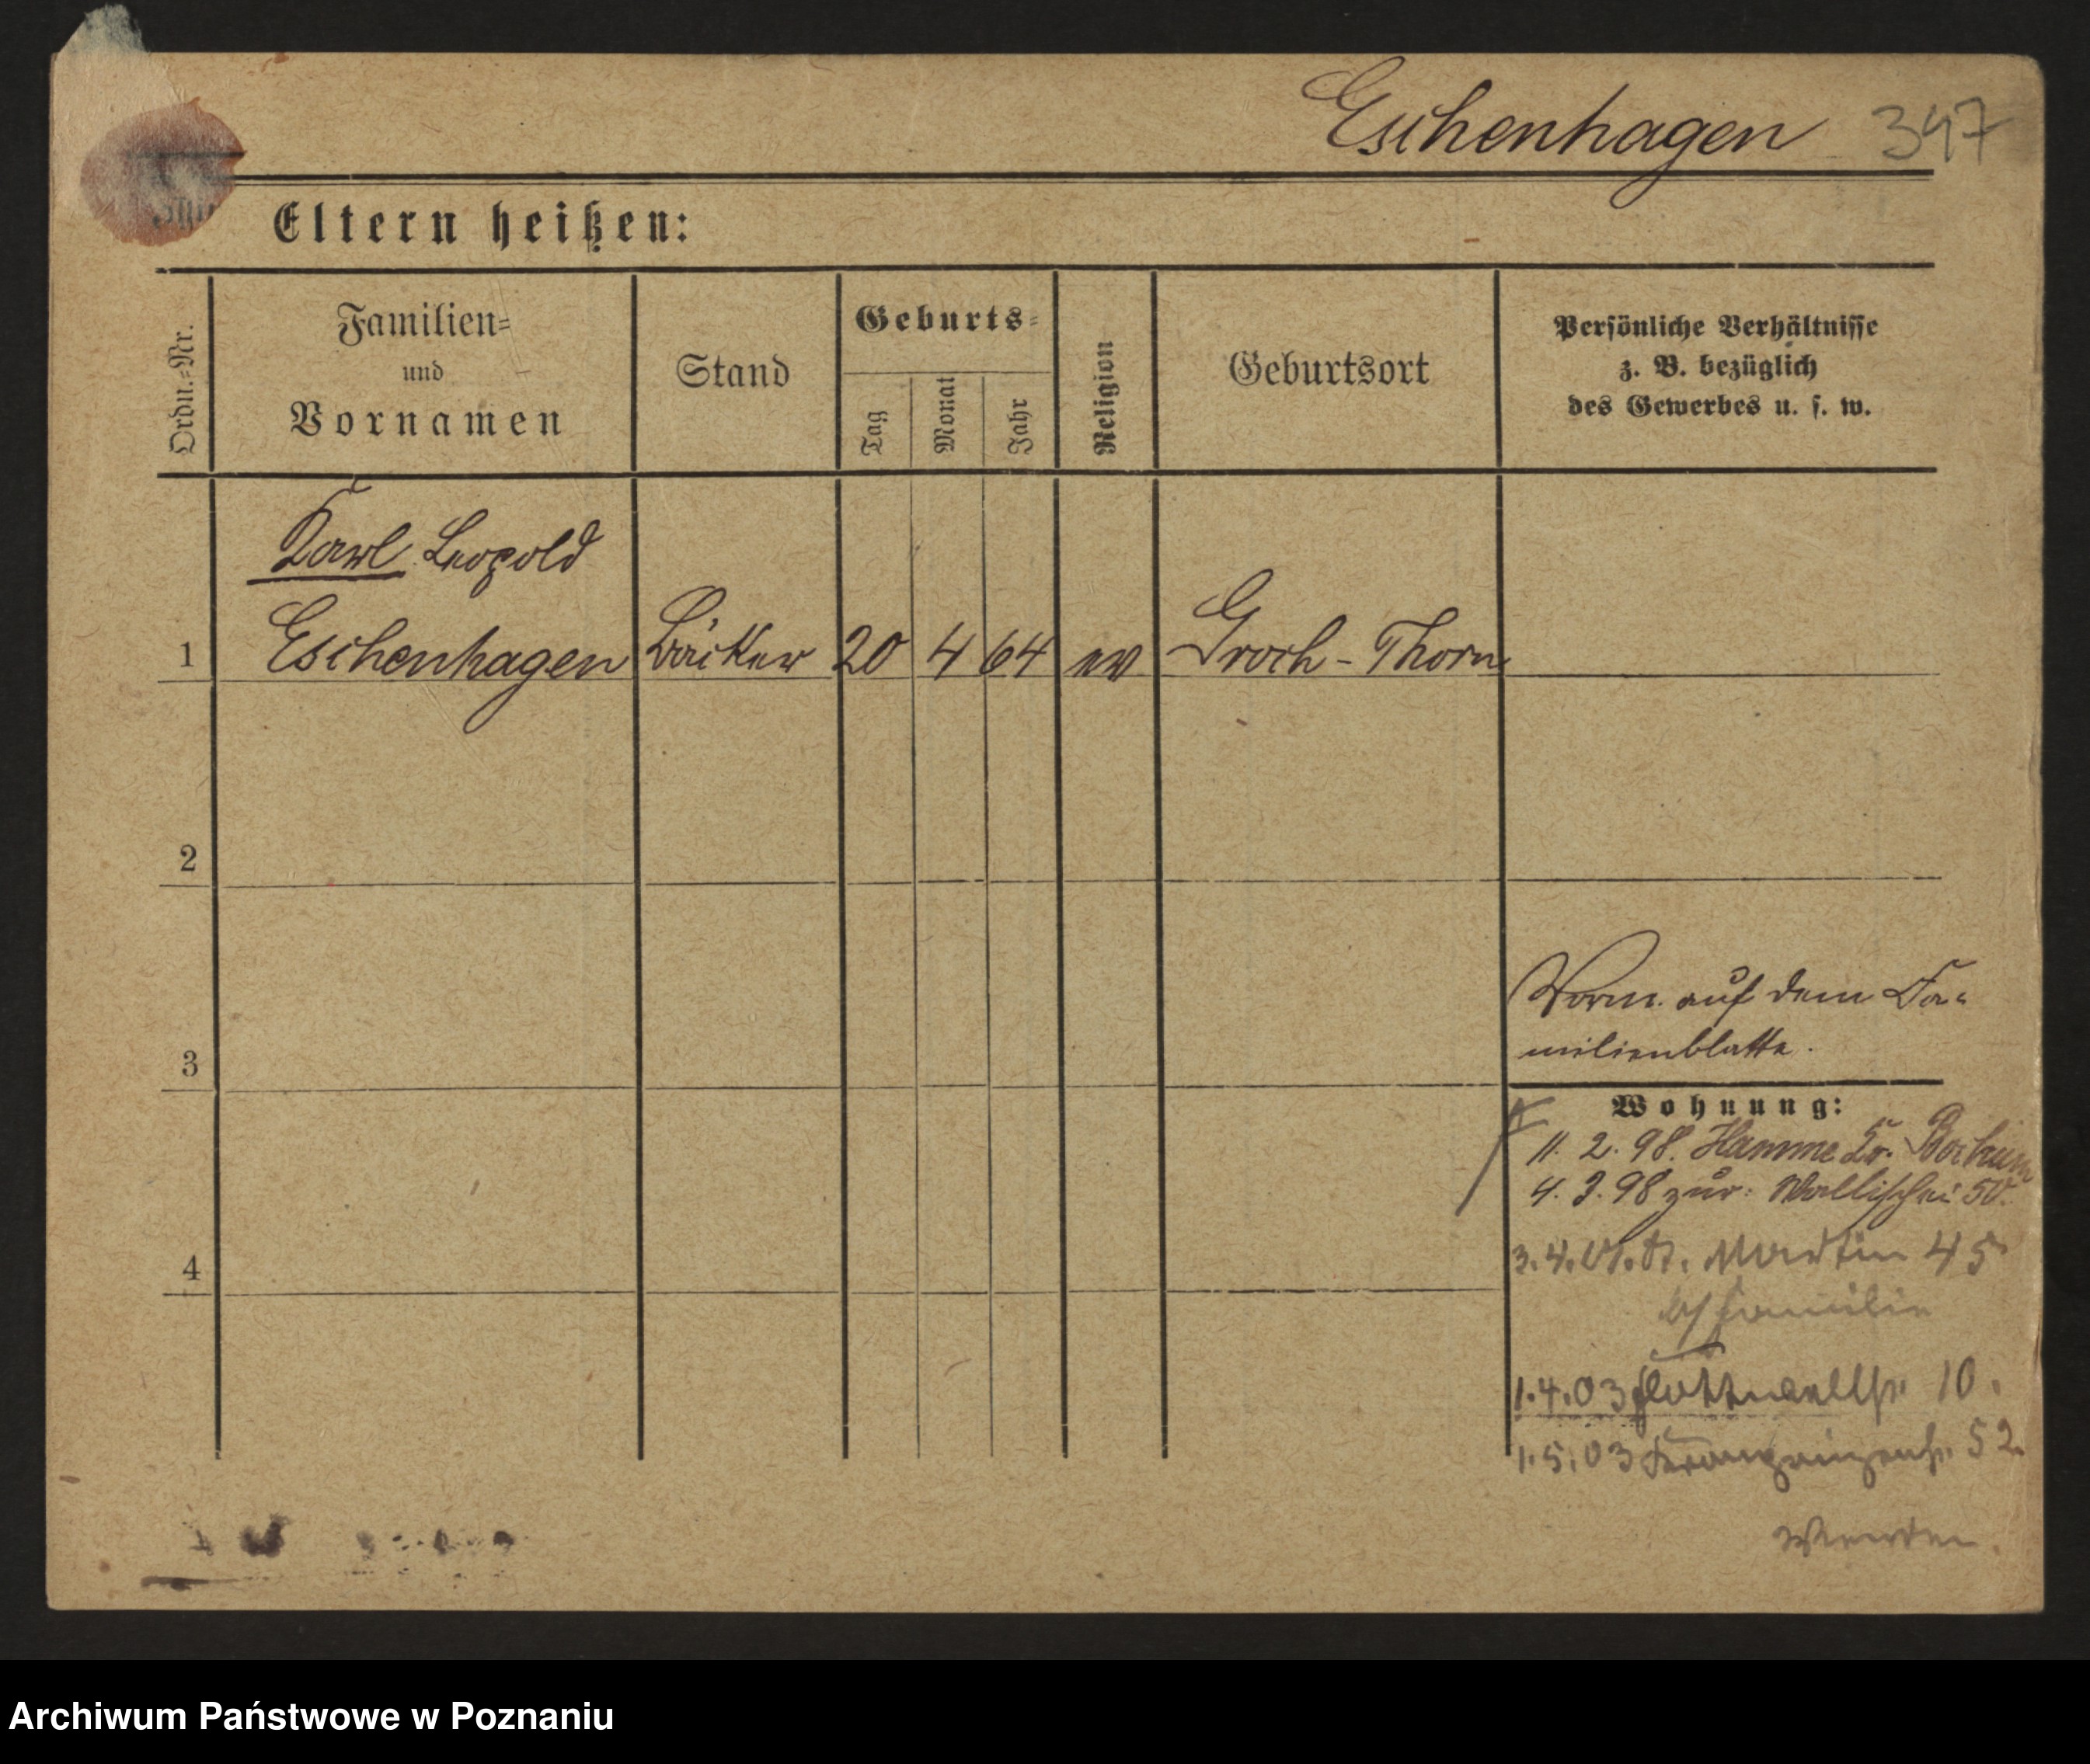 Eschenhagen 397
Eltern heißen:
Ordn.=Nr.
Familien=
und
Vornamen
Stand
Geburts=
Tag
Monat
Jahr
Religion
Geburtsort
Persönliche Verhältnisse
z. B. bezüglich
des Gewerbes u. s. w.
Karl Leopold
1 Eschenhagen Bäcker 20 4 64 ev Groch-Thorn
2
Vorm. auf dem Fa-
milienblatte.
3
Wohnung:
11. 2. 98. Hamme Kr. Bochum
4. 3. 98 zur: Wallischei 50.
3. 4. 01. St. Martin 45
4
Familie
1.4.03 Flottwellstr. 10.
1.5.03 Kronprinzenstr. 52.
Archiwum Państwowe w Poznaniu